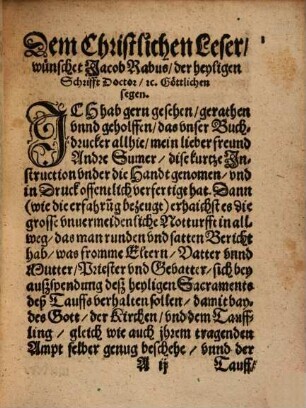 Dem Christlichen Leser/
wünschet Jacob Rabus/ der heyligen
Schrifft Doctor/ ꝛc. Göttlichen
segen.
ICH hab gern gesehen/ gerathen
vnnd geholffen/ das vnser Buch-
drucker allhie/ mein lieber freund
Andre Sumer/ dise kurtze In-
struction vnder die Handt genomen/ vnd
in Druck offentlich verfertigt hat. Dann
(wie die erfahrũg bezeugt) erhaischt es die
grosse vnuermeidenliche Notturfft in all-
weg/ das man runden vnd satten Bericht
hab/ was fromme Eltern/ Vatter vnnd
Mutter/ Priester vnd Gevatter/ sich bey
außspendung deß heyligen Sacraments
deß Tauffs verhalten sollen/ damit bay-
des Gott/ der Kirchen/ vnd dem Tauff-
ling/ gleich wie auch jhrem tragenden
Ampt selber genug beschehe/ vnnd der
A ij Tauff/